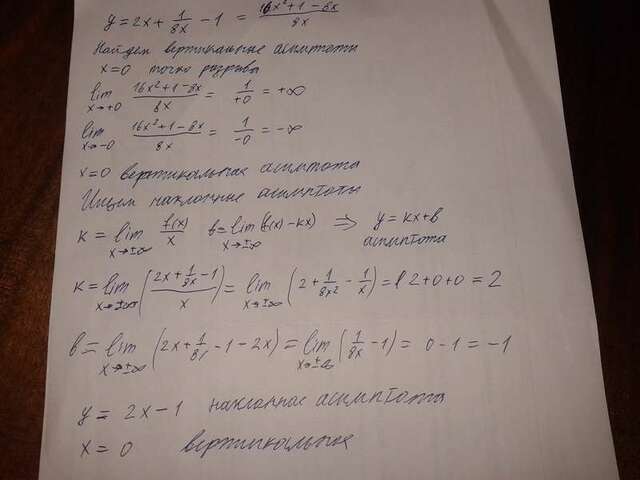 y = 2x + 1/8x - 1 = 16x² + 1 - 8x / 8x
Найдем вертикальные асимптоты
x = 0 точка разрыва
lim x→+0 16x² + 1 - 8x / 8x = 1/+0 = +∞
lim x→-0 16x² + 1 - 8x / 8x = 1/-0 = -∞
x = 0 вертикальная асимптота
Ищем наклонные асимптоты
k = lim x→±∞ f(x)/x b = lim x→±∞ (f(x) - kx) ⇒ y = kx + b
асимптота
k = lim x→±∞ (2x + 1/8x - 1 / x) = lim x→±∞ (2 + 1/8x² - 1/x) = 2 + 0 + 0 = 2
b = lim x→±∞ (2x + 1/8x - 1 - 2x) = lim x→±∞ (1/8x - 1) = 0 - 1 = -1
y = 2x - 1 наклонная асимптота
x = 0 вертикальная